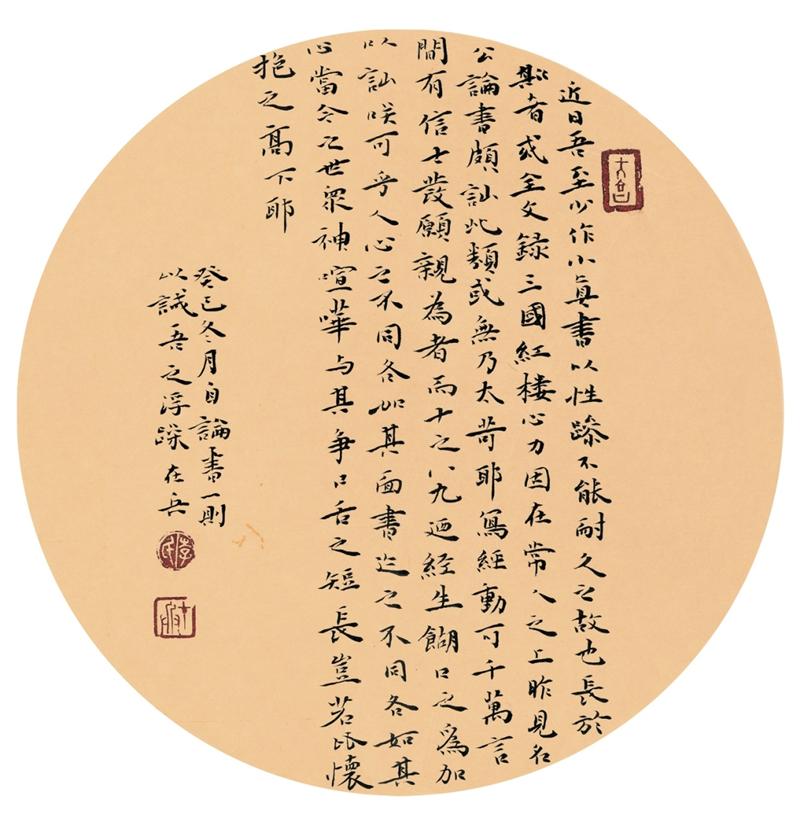 近日吾至少作小真書以性躁不能耐久之故也長於
斯者或全文錄三國紅楼心力固在常人之上昨見名
公論書頗訕此類或無乃太苛耶寫經動可千萬言
間有信士發願親為者而十之八九迺経生餬口之為加
以訕咲可乎人心之不同各如其面書迹之不同各如其
心當今之世眾神喧嘩与其爭口舌之短長豈若比懷
抱之高下耶
癸巳冬月自論書一則
以誡吾之浮躁在兵